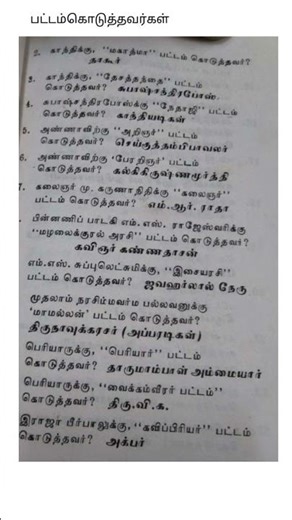 பட்டம்கொடுத்தவர்கள்
2. காந்திக்கு, "மகாத்மா" பட்டம் கொடுத்தவர்?
தாகூர்
3. காந்திக்கு, "தேசத்தந்தை" பட்டம்
கொடுத்தவர்? சுபாஷ்சந்திரபோஸ்
4. சுபாஷ்சந்திரபோஸ்க்கு "நேதாஜி" பட்டம்
கொடுத்தவர்? காந்தியடிகள்
5. அண்ணாவிற்கு "அறிஞர்" பட்டம்
கொடுத்தவர்? செய்குத்தம்பிபாவலர்
6. அண்ணாவிற்கு "பேரறிஞர்" பட்டம்
கொடுத்தவர்? கல்கிகிருஷ்ணமூர்த்தி
7. கலைஞர் மு. கருணாநிதிக்கு "கலைஞர்"
பட்டம் கொடுத்தவர்? எம்.ஆர். ராதா
பின்னணிப் பாடகி எம்.எஸ். ராஜேஸ்வரிக்கு
"மழலைக்குரல் அரசி" பட்டம் கொடுத்தவர்?
கவிஞர் கண்ணதாசன்
எம்.எஸ். சுப்புலெட்சுமிக்கு, "இசையரசி"
பட்டம் கொடுத்தவர்? ஜவஹர்லால் நேரு
முதலாம் நரசிம்மவர்ம பல்லவனுக்கு
'மாமல்லன்' பட்டம் கொடுத்தவர்?
திருநாவுக்கரசர் (அப்பரடிகள்)
பெரியாருக்கு, "பெரியார்" பட்டம்
கொடுத்தவர்? தாருமாம்பாள் அம்மையார்
பெரியாருக்கு, "வைக்கம்வீரர் பட்டம்"
கொடுத்தவர்? திரு.வி.க.
இராஜா பீர்பாலுக்கு, "கவிப்பிரியர்" பட்டம்
கொடுத்தவர்? அக்பர்